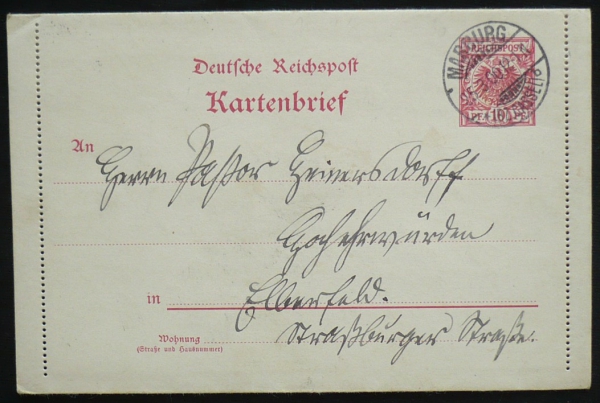 MARBURG
REICHSPOST
10
Deutsche Reichspost
Kartenbrief
An
Herrn Pastor Heinersdorff
Hochehrwürden
in Elberfeld.
Wohnung
(Straße und Hausnummer)
Straßburger Straße.